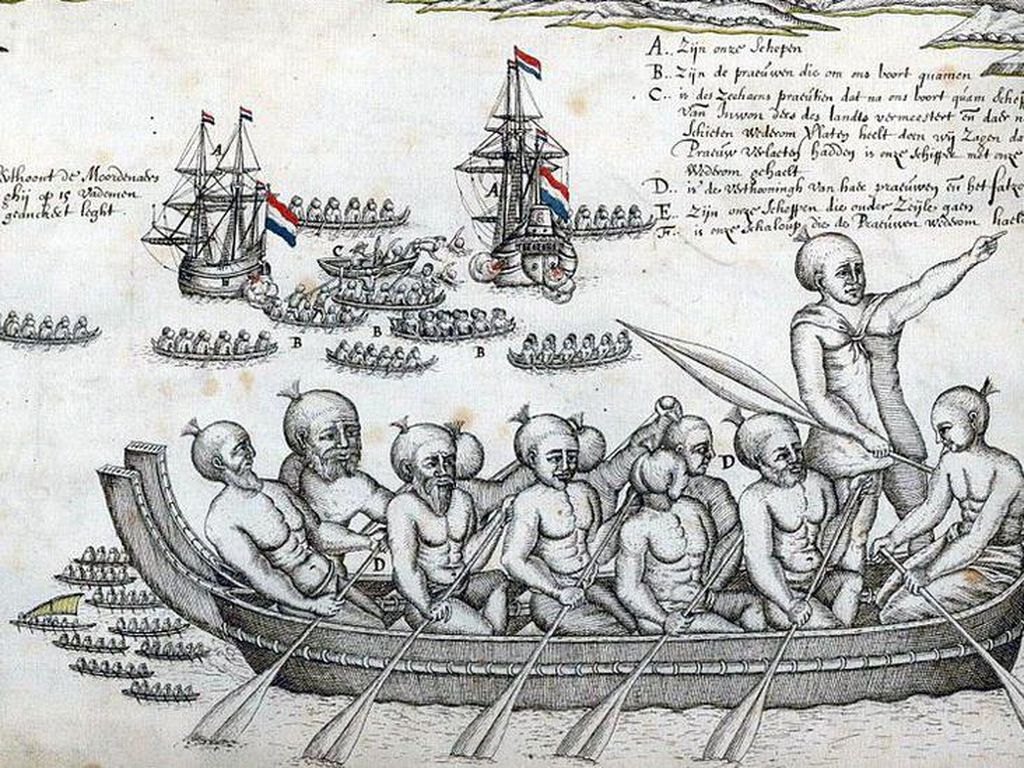 A.. Zijn onze Schepen
B.. Zijn de praeuwen die om ons boort quamen
C.. is des Zeehaens praeutien dat na ons boort quam
Van Inwon ders des landts vermeestert en daer n
Schieten wederom Verlaten heelt doen wij Zagen da
Praeuw Verlaeten hadden is onze Schipper met onze
Wederom gehaelt
D.. is de Verthooningh van haer praeuwen en het fatzo
E.. Zijn onze Scheppen die onder Zeijle gaen
F.. is onze Schaloup die de Praeuwen wederom haelt
erthoont de Moordenaers
ghij op 15 Vademen
geanckert leght.
A
A
C
B
B
B
D
D